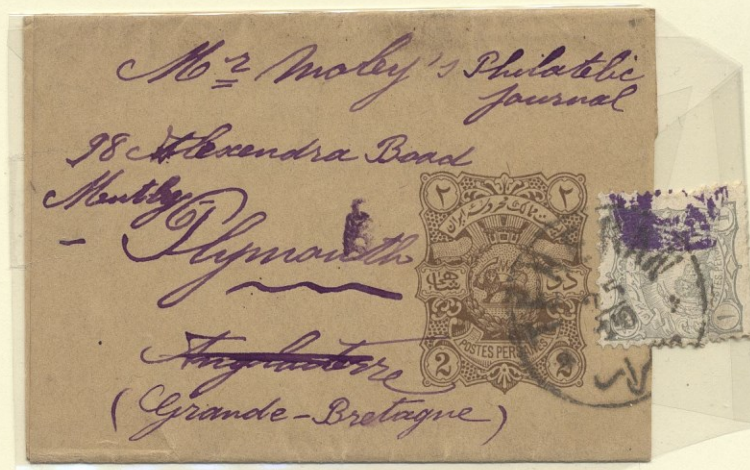 Mr Moley's Philatelic
Journal
98 Alexendra Boad
Mentley
Plymouth
Anglaterre
(Grande-Bretagne)
۲ ۲
2 POSTES PERSANES 2
1